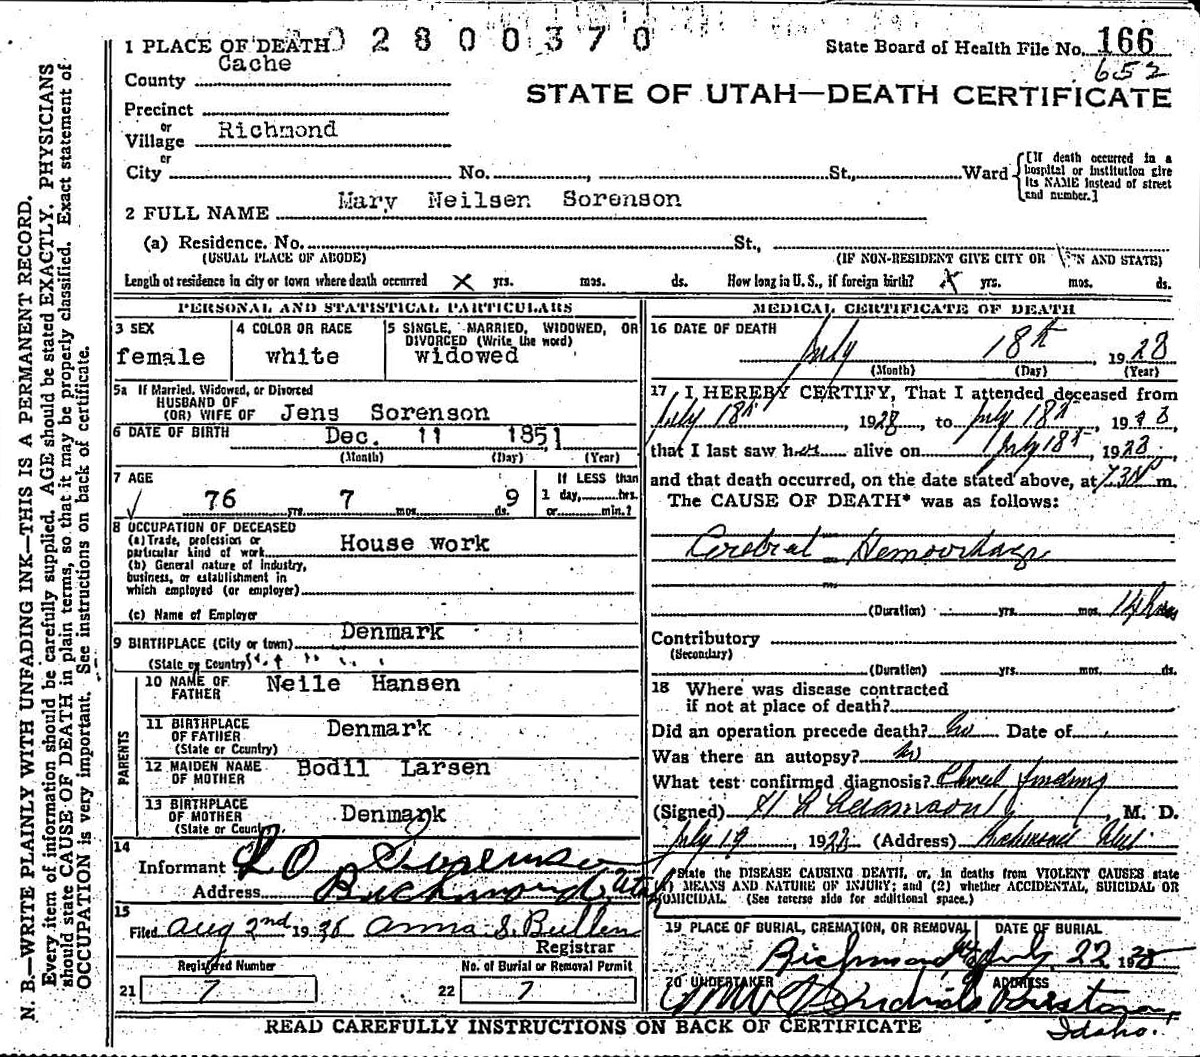 0 2 8 0 0 3 7 0
1 PLACE OF DEATH
State Board of Health File No. 166
652
County Cache
STATE OF UTAH—DEATH CERTIFICATE
Precinct
or
Village Richmond
or
City No. , St., Ward
[If death occurred in a
hospital or institution give
its NAME instead of street
and number.]
2 FULL NAME Mary Neilsen Sorenson
(a) Residence. No. St.,
(USUAL PLACE OF ABODE) (IF NON-RESIDENT GIVE CITY OR TOWN AND STATE)
Length of residence in city or town where death occurred X yrs. mos. ds. How long in U. S., if foreign birth? X yrs. mos. ds.
PERSONAL AND STATISTICAL PARTICULARS
3 SEX
female
4 COLOR OR RACE
white
5 SINGLE, MARRIED, WIDOWED, OR
DIVORCED (Write the word)
widowed
5a If Married, Widowed, or Divorced
HUSBAND OF
(OR) WIFE OF Jens Sorenson
6 DATE OF BIRTH Dec. 11 1851
(Month) (Day) (Year)
7 AGE
76 yrs. 7 mos. 9 ds.
If LESS than
1 day, hrs.
or min.?
8 OCCUPATION OF DECEASED
(a) Trade, profession or
particular kind of work House work
(b) General nature of industry,
business, or establishment in
which employed (or employer)
(c) Name of Employer
9 BIRTHPLACE (City or town) Denmark
(State or Country) " " "
PARENTS
10 NAME OF
FATHER Neile Hansen
11 BIRTHPLACE
OF FATHER Denmark
(State or Country)
12 MAIDEN NAME
OF MOTHER Bodil Larsen
13 BIRTHPLACE
OF MOTHER Denmark
(State or Country)
14
Informant L O Sorenson
Address Richmond, Utah
15
Filed Aug 2nd 1928 Anna S. Bullen
Registrar
Registered Number
21 7
No. of Burial or Removal Permit
22 7
MEDICAL CERTIFICATE OF DEATH
16 DATE OF DEATH
July 18th, 1928
(Month) (Day) (Year)
17 I HEREBY CERTIFY, That I attended deceased from
July 18th, 1928, to July 18th, 1928,
that I last saw her alive on July 18th, 1928,
and that death occurred, on the date stated above, at m.
The CAUSE OF DEATH* was as follows:
Cerebral Hemorrhage
(Duration) yrs. mos. 14 hours
Contributory
(Secondary)
(Duration) yrs. mos. ds.
18 Where was disease contracted
if not at place of death?
Did an operation precede death? No Date of
Was there an autopsy? No
What test confirmed diagnosis? finding
(Signed) Adamson, M. D.
July 19, 1928 (Address) Richmond Utah
*State the DISEASE CAUSING DEATH, or, in deaths from VIOLENT CAUSES state
(1) MEANS AND NATURE OF INJURY; and (2) whether ACCIDENTAL, SUICIDAL OR
HOMICIDAL. (See reverse side for additional space.)
19 PLACE OF BURIAL, CREMATION, OR REMOVAL
DATE OF BURIAL
Richmond July 22 1928
20 UNDERTAKER
ADDRESS
Preston,
Idaho.
READ CAREFULLY INSTRUCTIONS ON BACK OF CERTIFICATE
N. B.—WRITE PLAINLY WITH UNFADING INK—THIS IS A PERMANENT RECORD.
Every item of information should be carefully supplied. AGE should be stated EXACTLY. PHYSICIANS
should state CAUSE OF DEATH in plain terms, so that it may be properly classified. Exact statement of
OCCUPATION is very important. See instructions on back of certificate.